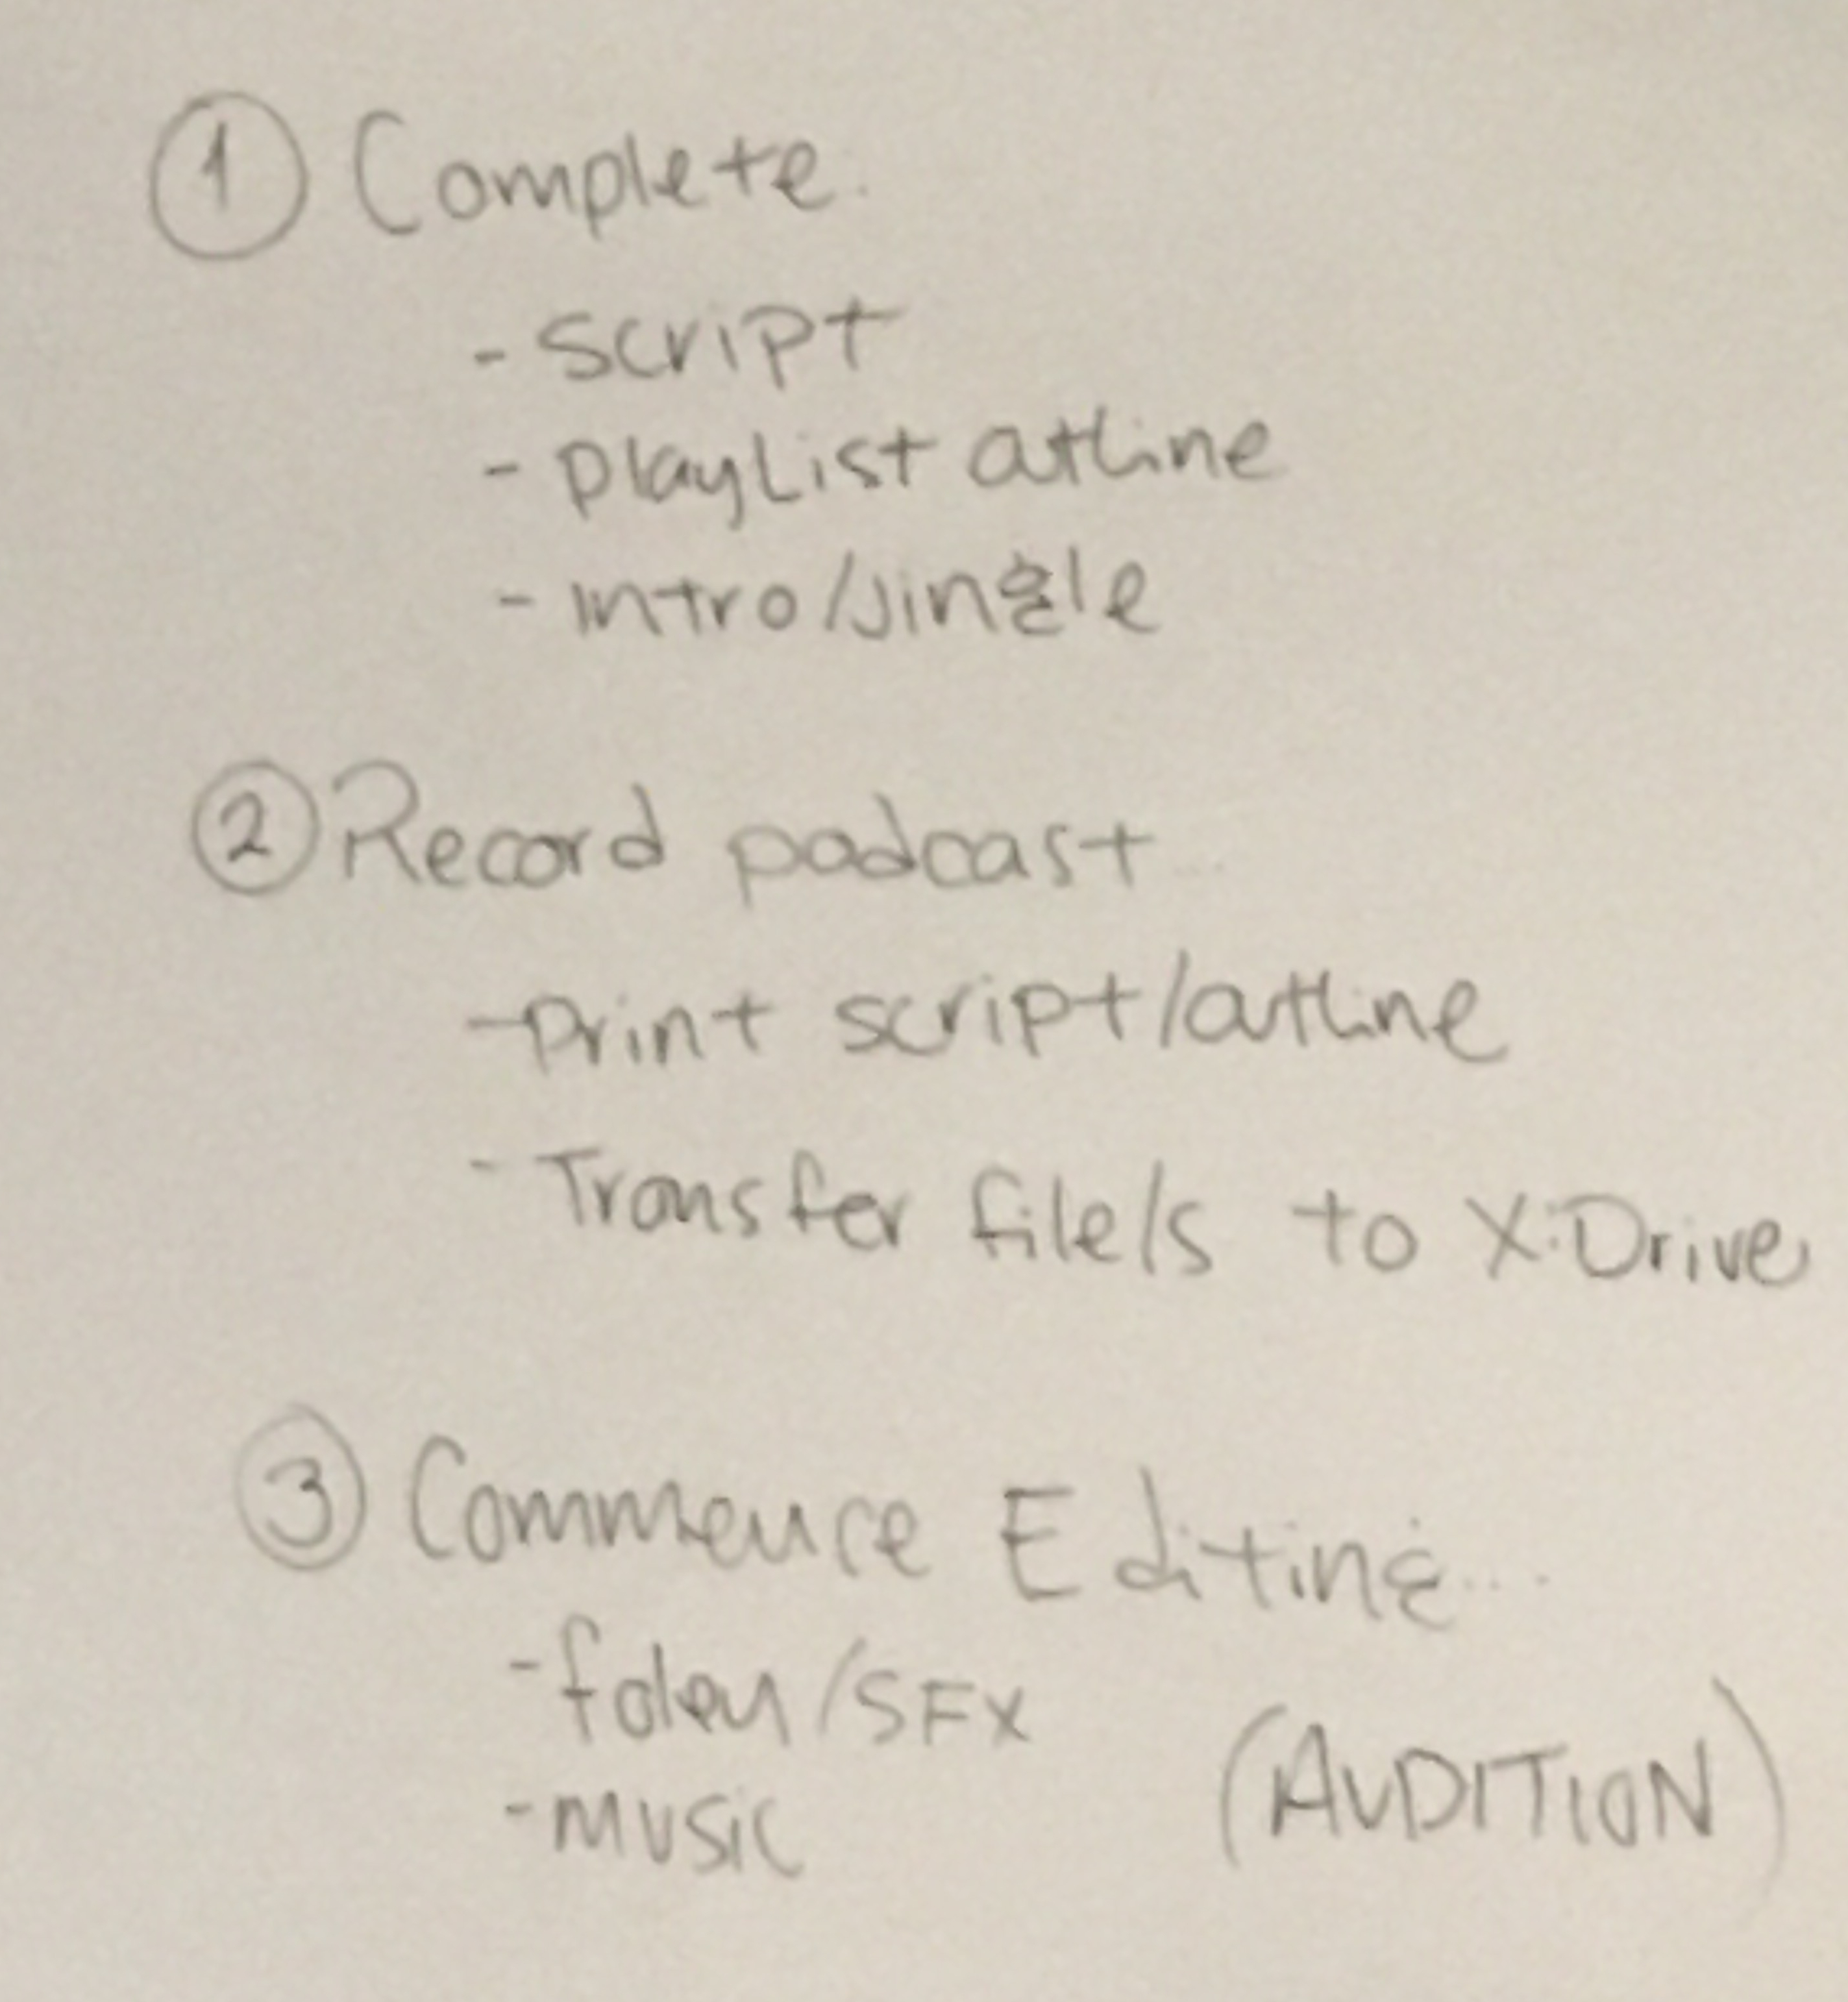 ① Complete.
- script
- playList outline
- intro/jingle
② Record podcast...
- print script/outline
- Transfer file/s to X:Drive
③ Commence Editing...
- foley/SFX
- music
(AUDITION)